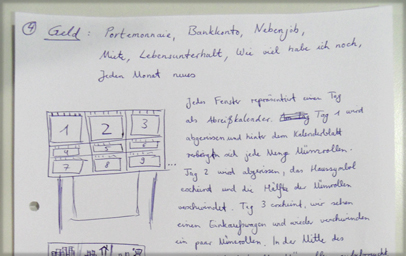 4 Geld : Portemonnaie, Bankkonto, Nebenjob,
Miete, Lebensunterhalt, Wie viel habe ich noch,
Jeden Monat neues
Jedes Fenster repräsentiert einen Tag
als Abreißkalender. Tag 1 wird
abgerissen und hinter dem Kalenderblatt
verbirgt sich jede Menge Münzrollen.
Tag 2 wird abgerissen, das Haussymbol
erscheint und die Hälfte der Münzrollen
verschwindet. Tag 3 erscheint, wir sehen
einen Einkaufswagen und wieder verschwinden
ein paar Münzrollen. In der Mitte des
1 2 3
4 5 6
7 8 9 ...